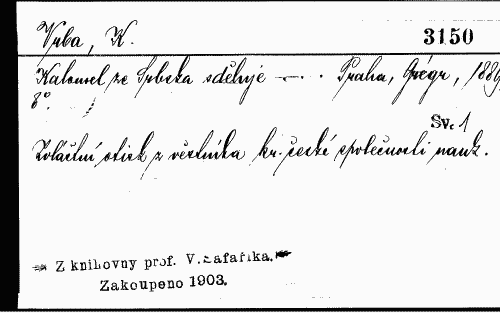 Vrba, K.
3150
Kalomel ze Srbska sděluje —.. Praha, Grégr, 1886,
8°.
Sv. 1
Zvláštní otisk z věstníka kr. české společnosti nauk.
Z knihovny prof. V. Šafaříka.
Zakoupeno 1903.